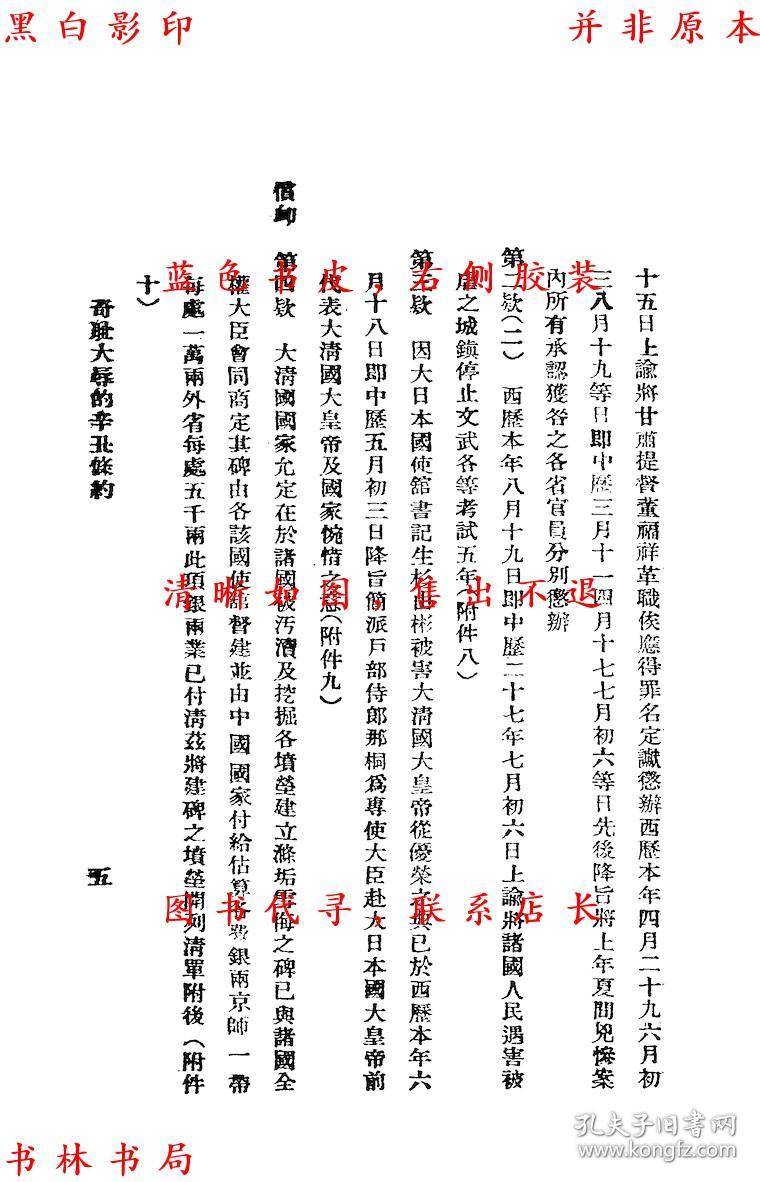 黑白影印
并非原本
十五日上諭將甘肅提督董福祥革職俟應得罪名定讞懲辦西歷本年四月二十九六月初
三八月十九等日即中歷三月十一四月十七七月初六等日先後降旨將上年夏間兇慘案
內所有承認獲咎之各省官員分別懲辦
第二欵(二) 西歷本年八月十九日即中歷二十七年七月初六日上諭將諸國人民遇害被
虐之城鎮停止文武各等考試五年(附件八)
第三欵 因大日本國使館書記生杉山彬被害大清國大皇帝從優榮之典已於西歷本年六
月十八日即中歷五月初三日降旨簡派戶部侍郎那桐爲專使大臣赴大日本國大皇帝前
代表大清國大皇帝及國家惋惜之意(附件九)
第四欵 大清國國家允定在於諸國被汚瀆及挖掘各墳塋建立滌垢雪侮之碑已與諸國全
權大臣會同商定其碑由各該國使館督建並由中國國家付給估算各費銀兩京師一帶
每處一萬兩外省每處五千兩此項銀兩業已付清茲將建碑之墳塋開列清單附後(附件
十)
奇耻大辱的辛丑條約
五
蓝色书皮,右侧胶装
清晰如图,售出不退
图书代寻,联系店长
书林书局
孔夫子旧书网
www.kongfz.com